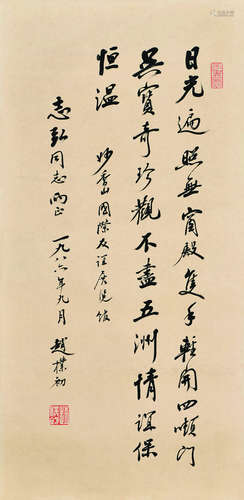 日光遍照無窗殿隻手輕開四噸門
異寶奇珍觀不盡五洲情誼保
恒温
妙香山國際友誼展览馆
志弘同志両正
一九八六年九月 趙樸初